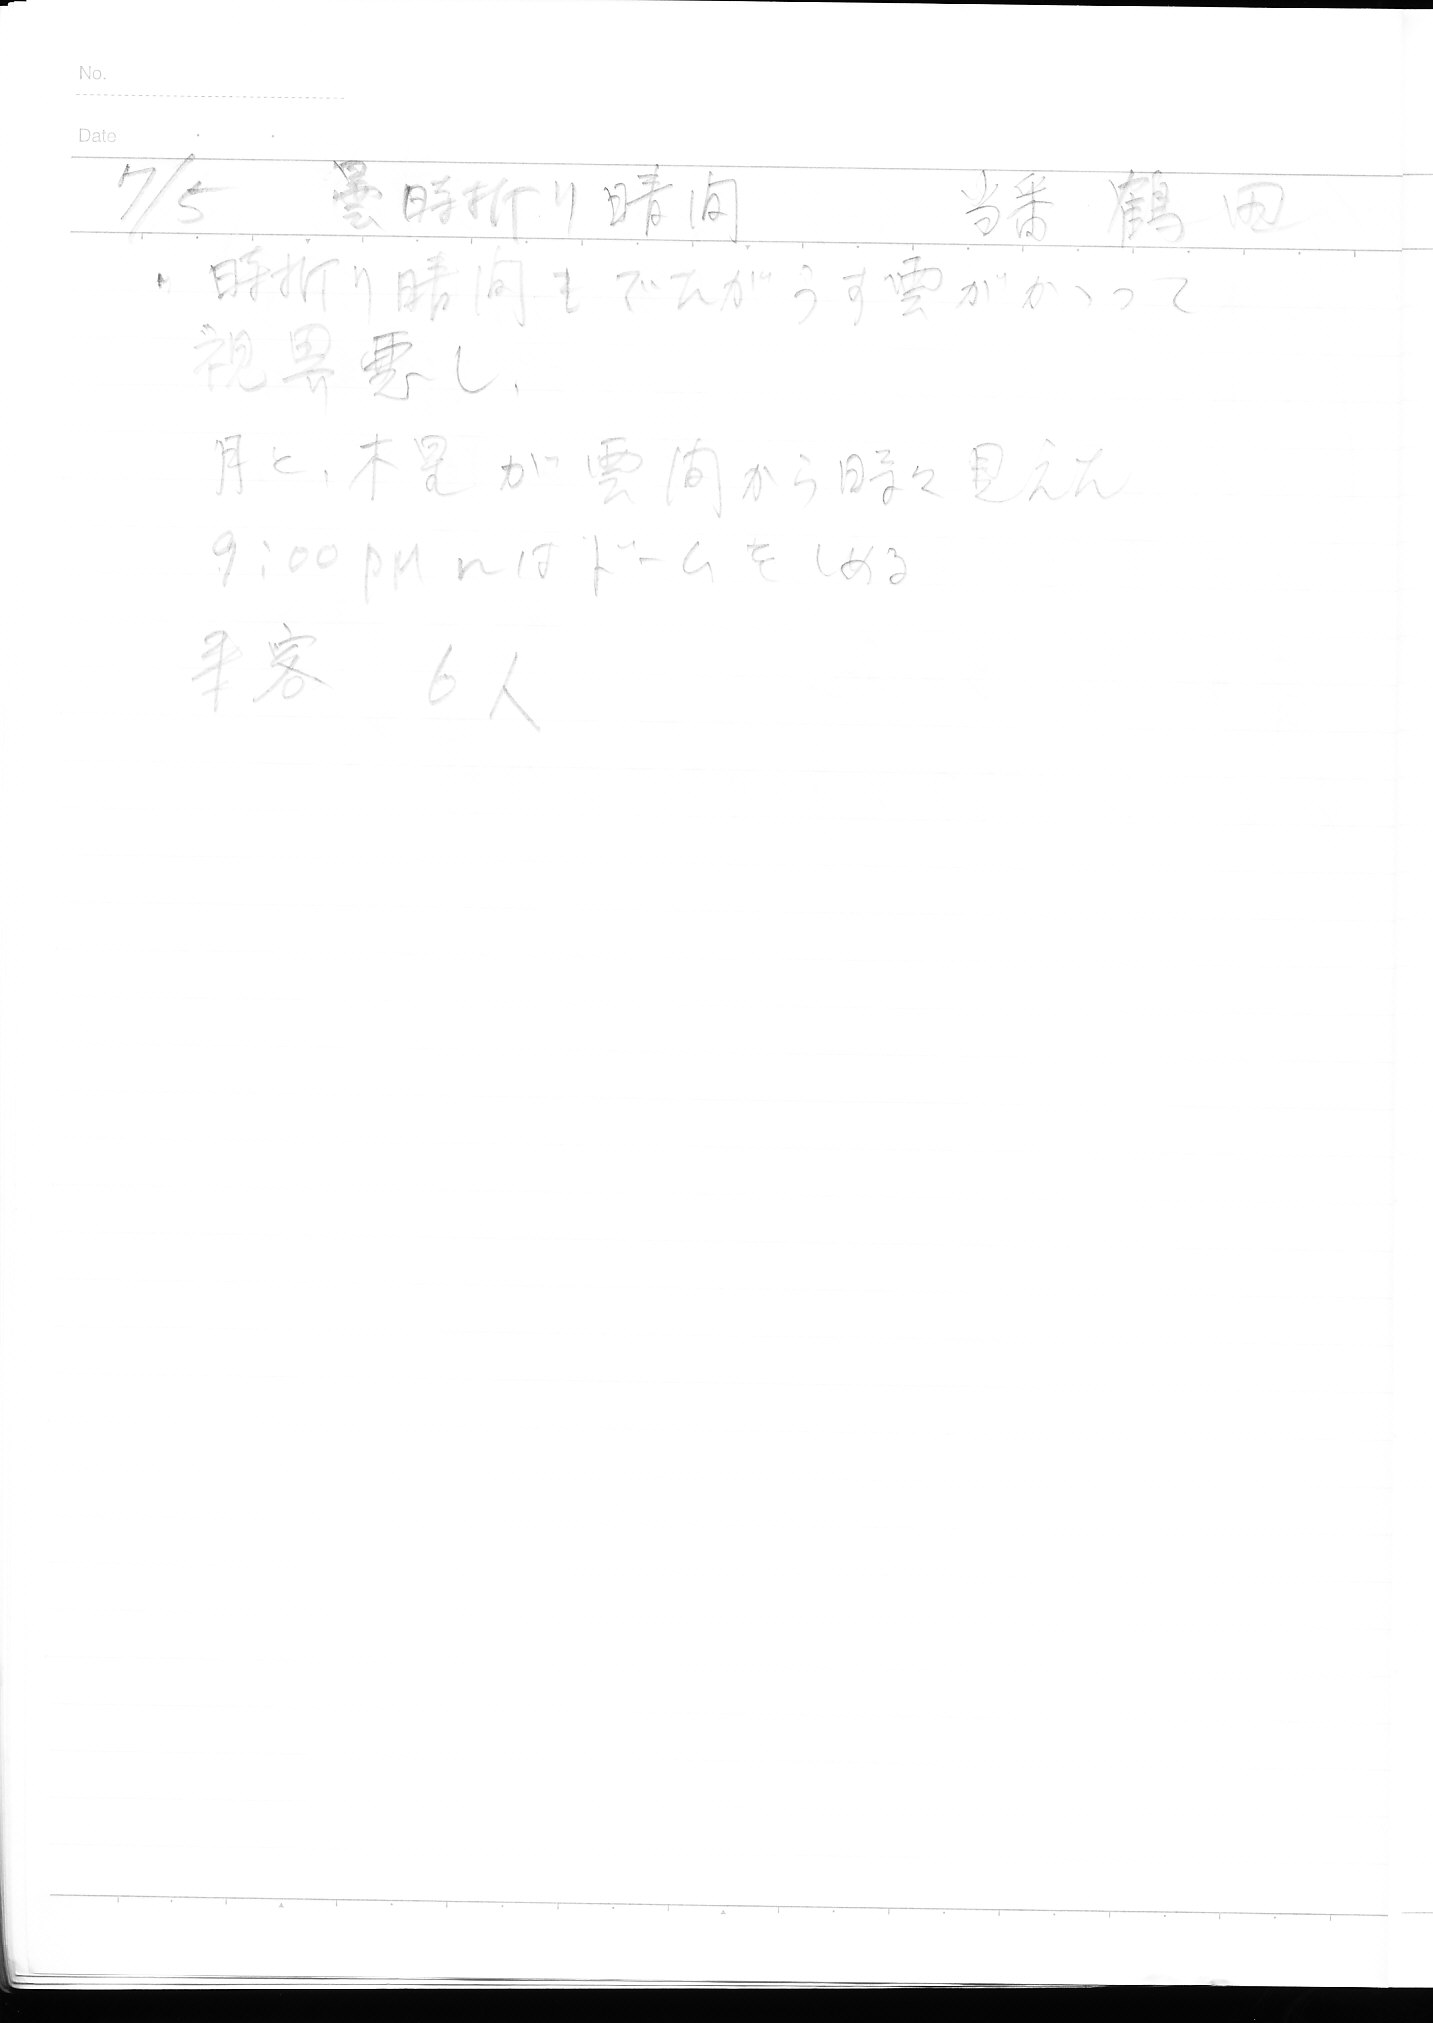 No.
Date
7/5 曇時折り晴間 当番 鶴田
〃 時折り晴間もでたがうす雲がかゝって
視界悪し、
月と、木星が雲間から時々見えた
9:00PMにはドームをしめる
来客 6人